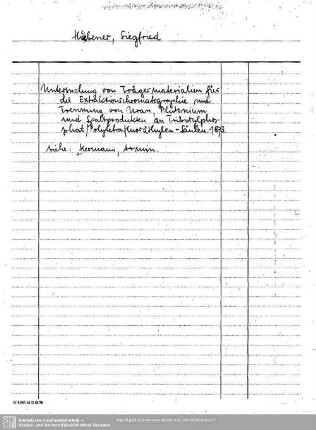 Hübener, Siegfried
Untersuchung von Trägermaterialien für
die Extraktionschromatographie und
Trennung von Uran, Plutonium
und Spaltprodukten an Tributylphos-
phat/Polytetrafluoräthylen-Säulen. 1973
siehe: Hermann, Armin.
Sächsische Landesbibliothek -
Staats- und Universitätsbibliothek Dresden